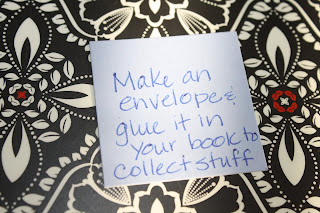 Make an
envelope &
glue it in
your book to
collect stuff